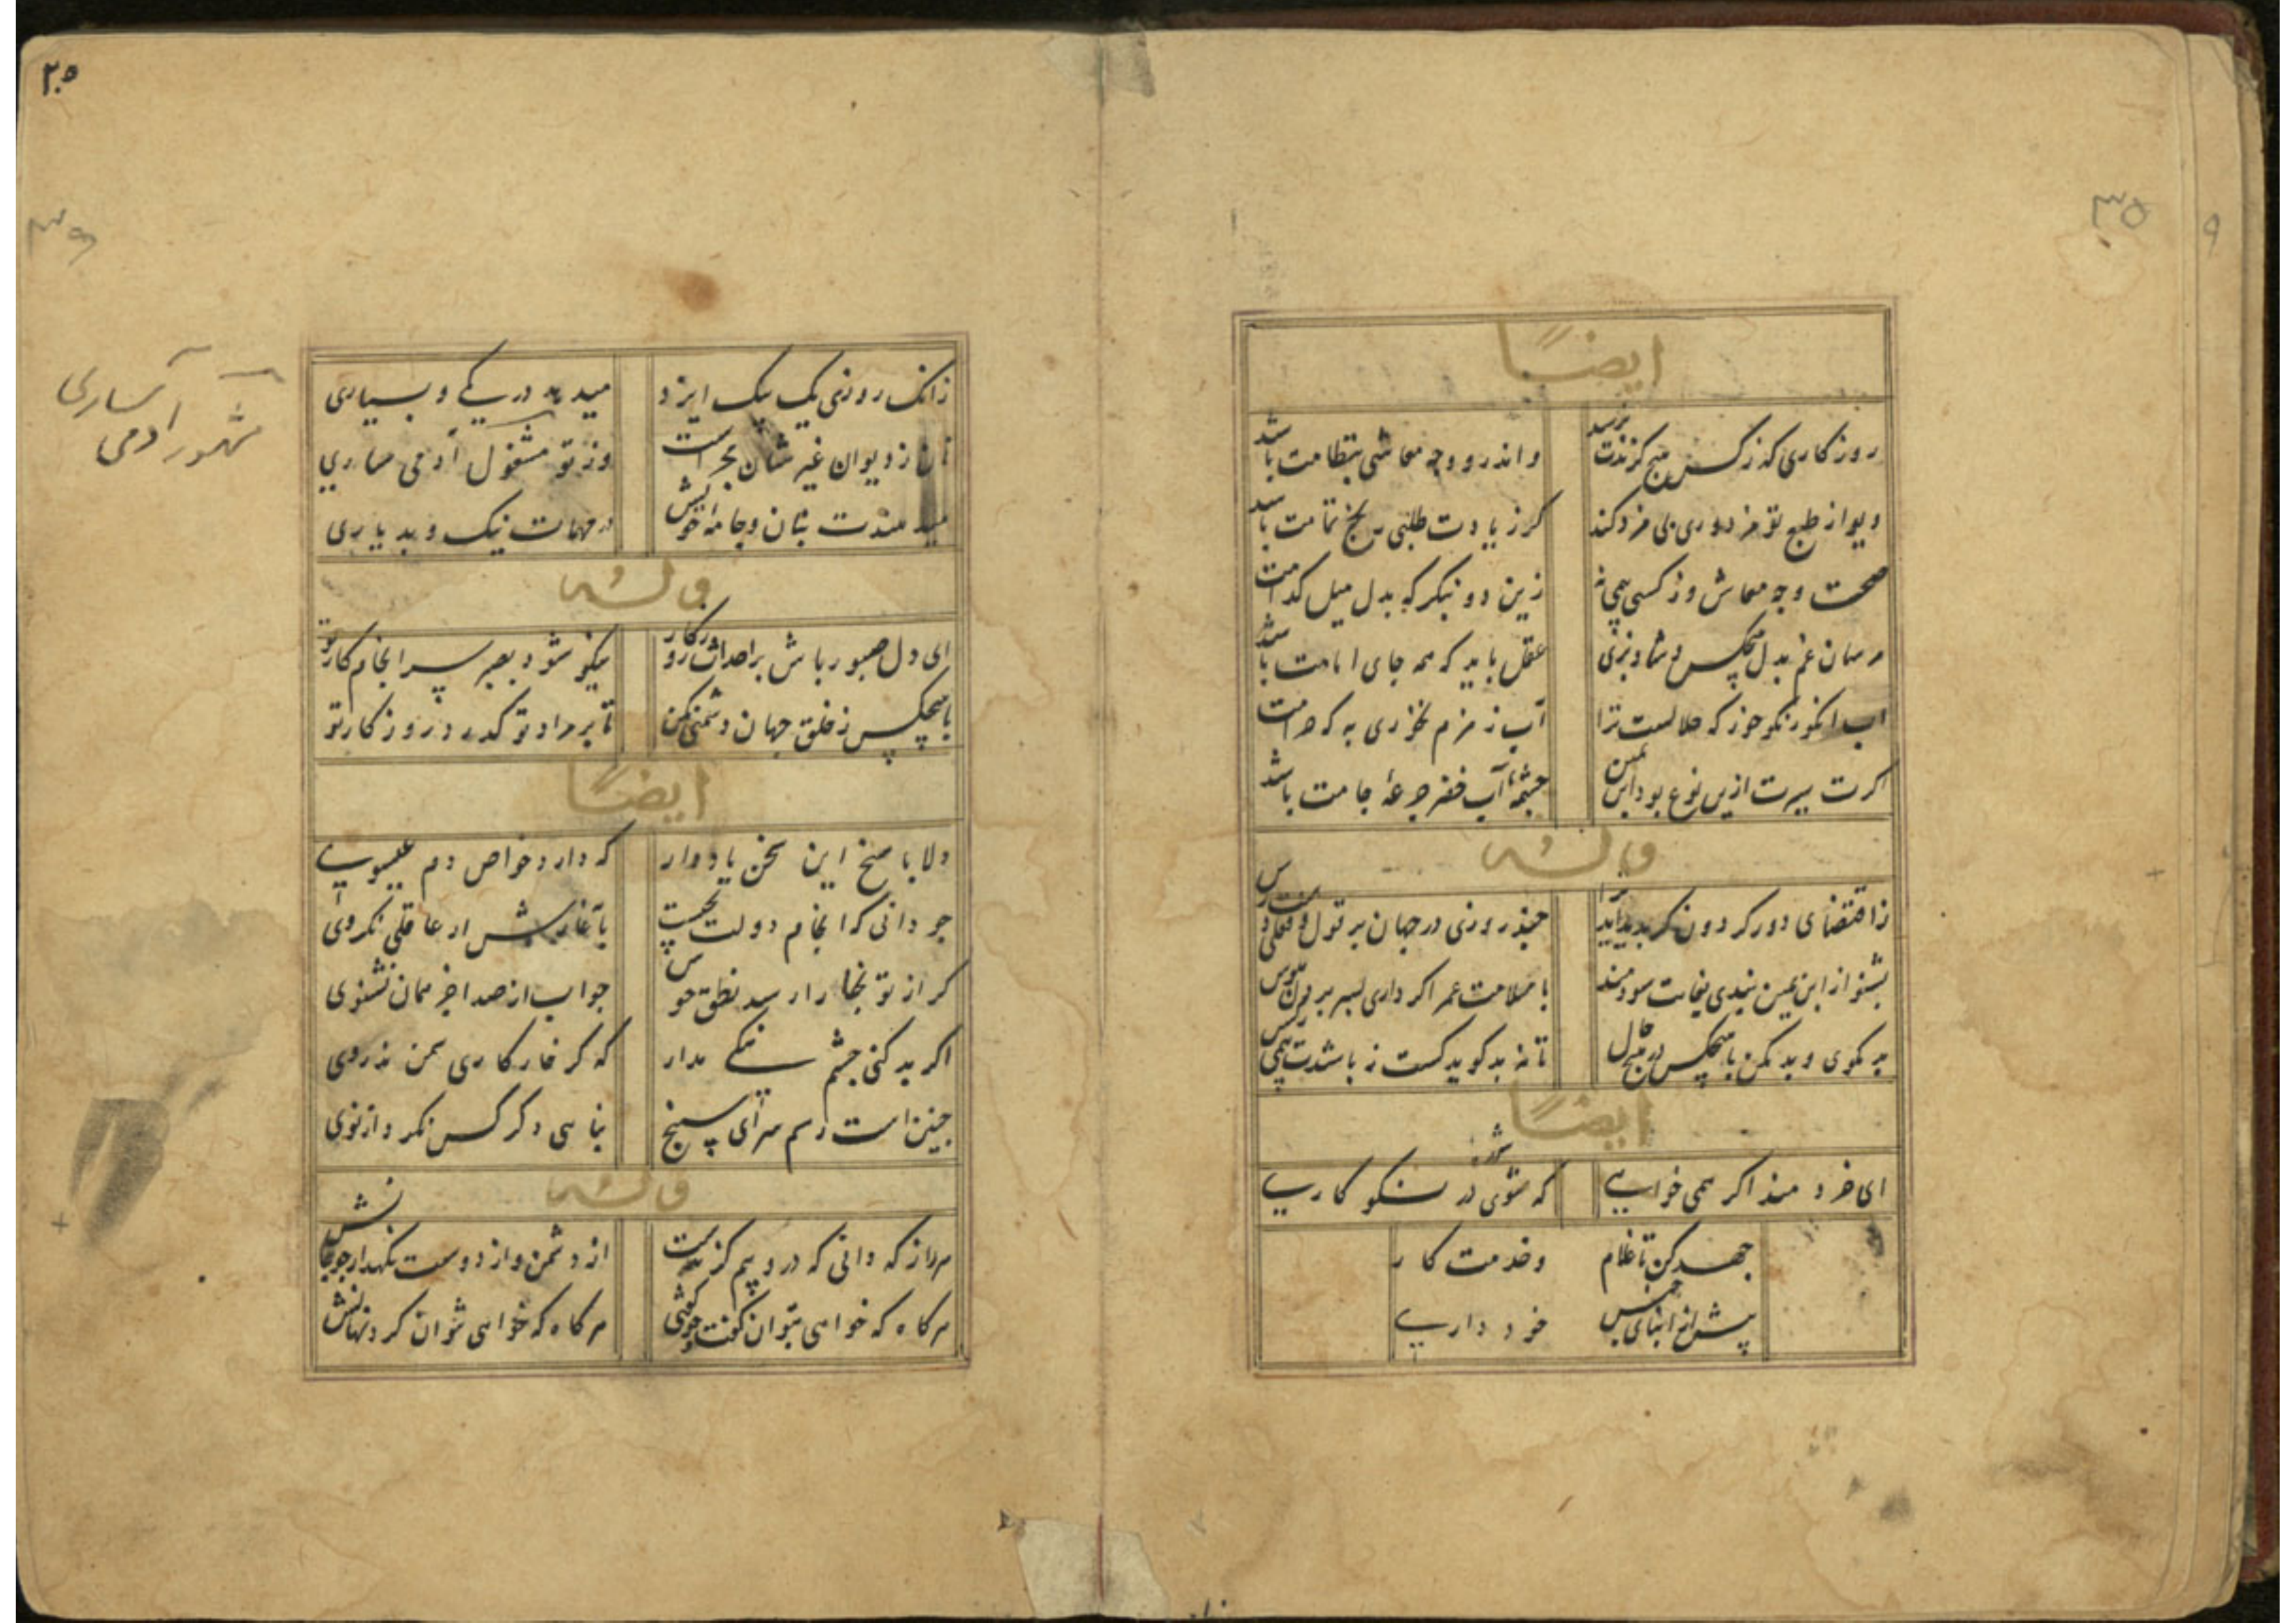 ۳۵
ایضا
روزکاری که زکس هیچ کزندت نرسد واندرو وجه معاشی بنظامت باشد
دیو از طبع تو مزدوری بی مزد کند کر زیادت طلبی رنج تمامت باشد
صحت وجه معاش وز کسی بیمی نه زین دو بنکر که بدل میل کدامت باشد
مرسان غم بدل هیچکس و شاد بزی عقل باید که همه جای امامت باشد
اب انکور نکو خور که حلالست ترا آب زمزم نخوری به که حرامت باشد
اکرت سیرت ازین نوع بود ابن یمین چشمهٔ آب خضر جرعهٔ جامت باشد
وله
زاقتضای دور کردون کر پدید آید ترا چند روزی در جهان بر قول و فعلی دست رس
بشنو از ابن یمین پندی بغایت سودمند با سلامت عمر اکر داری بسر بردن هوس
بد مکوی و بد مکن با هیچکس در هیچ حال تا نه بد کوید کست نه باشدت بیمی زکس
ایضا
ای خردمند اکر همی خواهی که شوی در نکو کاری
جهد کن تا غلام وخدمت کار
پیش از ابنای جنس خود داری
۲۰۵
۳۶
زانک روزی یک بیک ایزد میدهد در یکی و بسیاری
نان ز دیوان غیر شان مجراست وز تو مشغول آدمی ساری
میدهندت بنان وجامه خویش در مهمات نیک وبد یاری
مشهور آدمی ساری
وله
ای دل صبور باش بر احداث روزکار نیکو شود بصبر سرانجام کار تو
با هیچکس ز خلق جهان دشمنی مکن تا بر مراد تو کذرد روزکار تو
ایضا
دلا با من این سخن یاد دار که دارد خواص دم عیسوی
چو دانی که انجام دولت بچیست بآغازش ار عاقلی نکروی
کر از تو نجا را رسد نطق خوش جواب از صدا جز همان نشنوی
اکر بد کنی چشم نیکی مدار که کر خار کاری سمن ندروی
چنین است رسم سرای سپنج بناهی دکر کس نکرد از نوی
وله
هر راز که دانی که درو بیم کزندست از دشمن و از دوست نکهدار چو جانش
هر کاه که خواهی بتوان کفت چو کوشی هر کاه که خواهی نتوان کرد نهانش